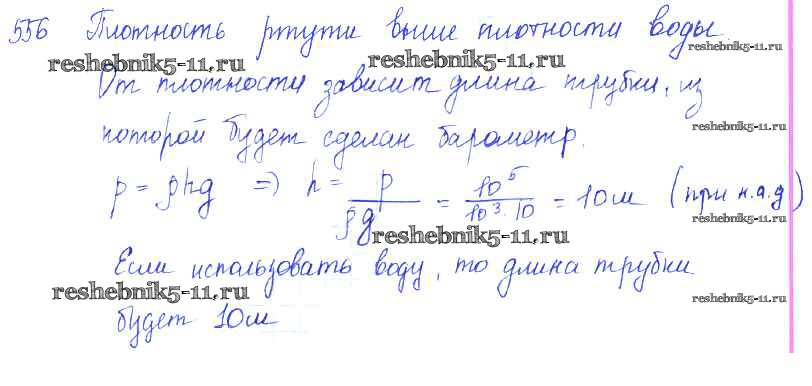 556 Плотность ртути выше плотности воды.
reshebnik5-11.ru reshebnik5-11.ru reshebnik5-11.ru
От плотности зависит длина трубки, из
которой будет сделан барометр.
reshebnik5-11.ru
p = ρhg => h = p/ρg = 10⁵/10³·10 = 10м (при н.а.д)
reshebnik5-11.ru reshebnik5-11.ru
Если использовать воду, то длина трубки
reshebnik5-11.ru reshebnik5-11.ru
будет 10м